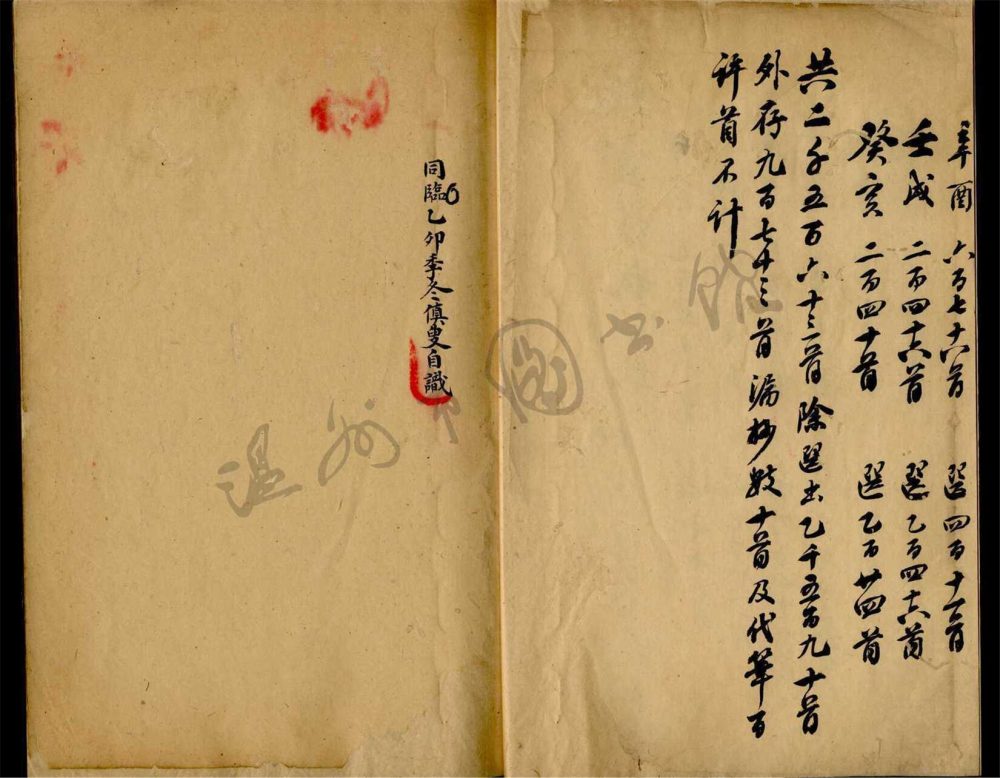 辛酉 六百七十六首 選四百十首
壬戌 二百四十六首 選乙百四十六首
癸亥 二百四十首 選乙百廿四首
共二千五百六十三首除選出乙千五百九十首
外存九百七十三首漏抄數十首及代筆百
許首不計
同臨乙卯季冬慎叟自識
温州市圖書館